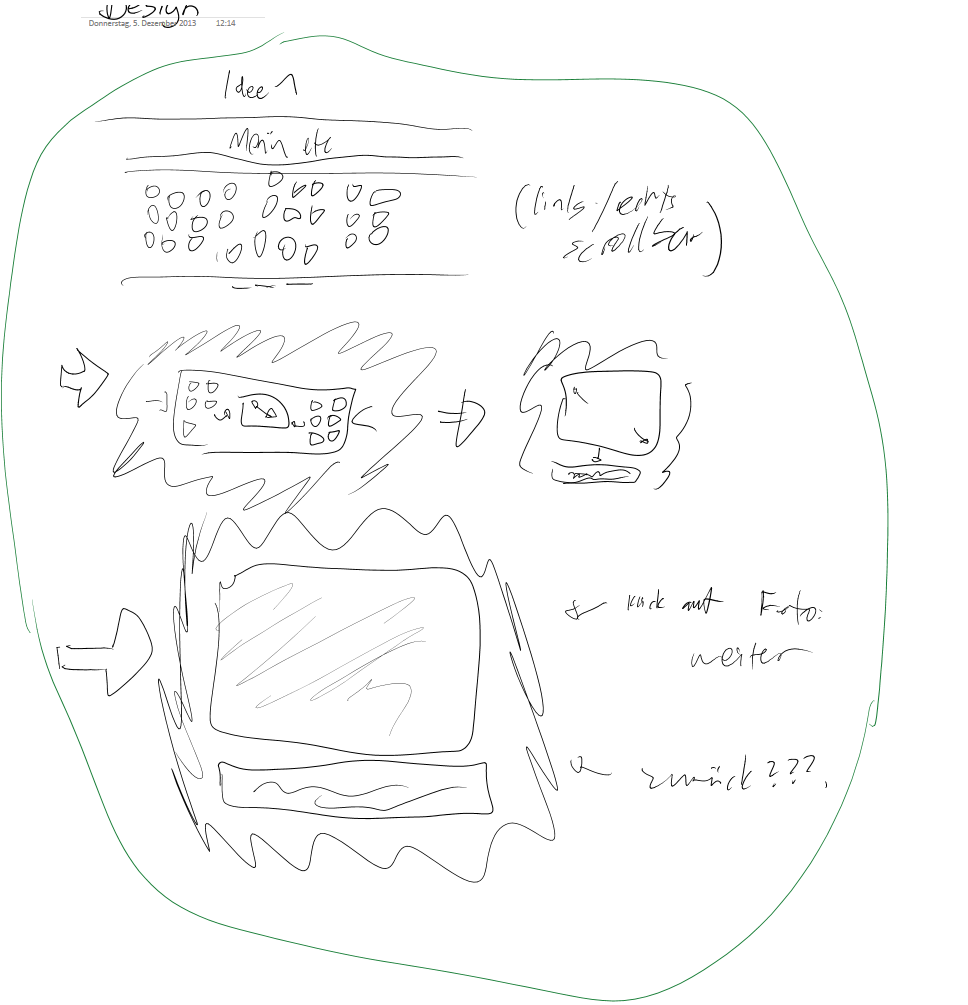 Design
Donnerstag, 5. Dezember 2013 12:14
Idee 1
Menü etc
(links/rechts
scrollbar)
Klick auf Foto:
weiter
zurück???